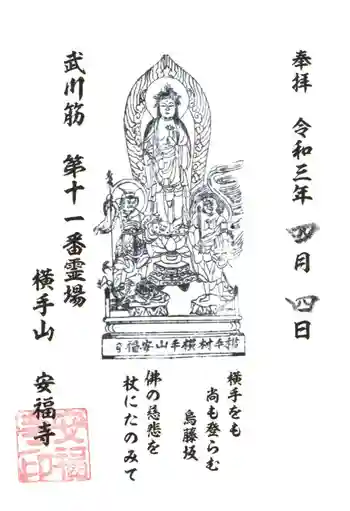 奉拝 令和三年 四月 四日
武川筋 第十一番霊場
横手山 安福寺
横手をも
尚も登らむ
烏藤坂
佛の慈悲を
杖にたのみて
安福
寺印